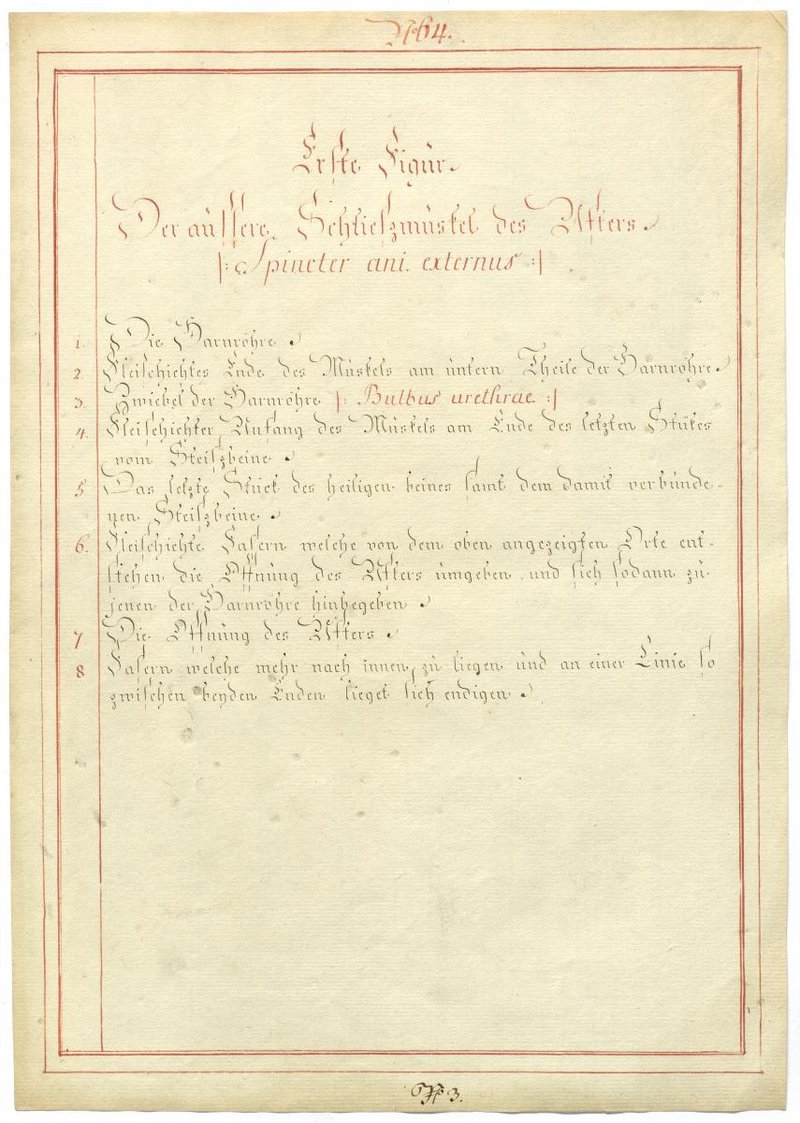 N° 64.
Erste Figur.
Der äussere Schlieszmuskel des Afters.
|: Spincter ani externus :|
1. Die Harnröhre.
2. Fleischichtes Ende des Muskels am untern Theile der Harnröhre.
3. Zwiebel der Harnröhre |: Bulbus urethrae :|
4. Fleischichter Anfang des Muskels am Ende des letzten Stükes
vom Steiszbeine.
5 Das letzte Stück des heiligen beines samt dem damit verbunde-
nen Steiszbeine.
6. Fleischichte Fasern welche von dem oben angezeigten Orte ent-
stehen die Öffnung des Afters umgeben, und sich sodann zu
jenen der Harnröhre hinbegeben.
7 Die Öffnung des Afters.
8 Fasern welche mehr nach innen zu liegen und an einer Linie so
zwischen beyden Enden lieget sich endigen.
3.